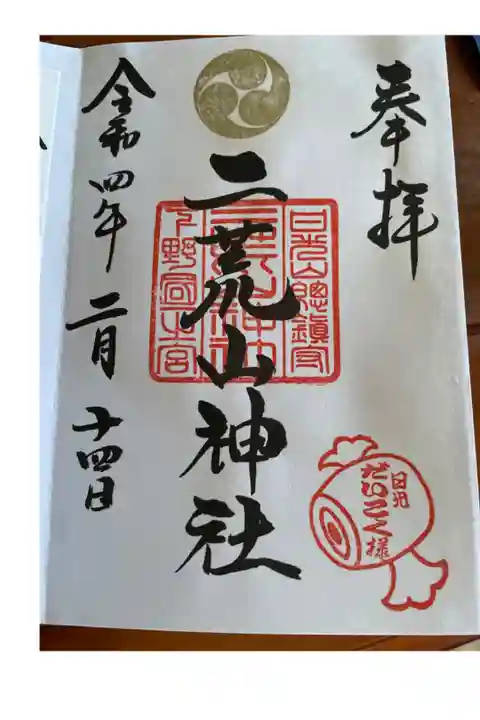 奉拝
日光山總鎮守
二荒山神社
二荒山神社
下野國一之宮
令和四年 二月 十四日
日光
だいこく様